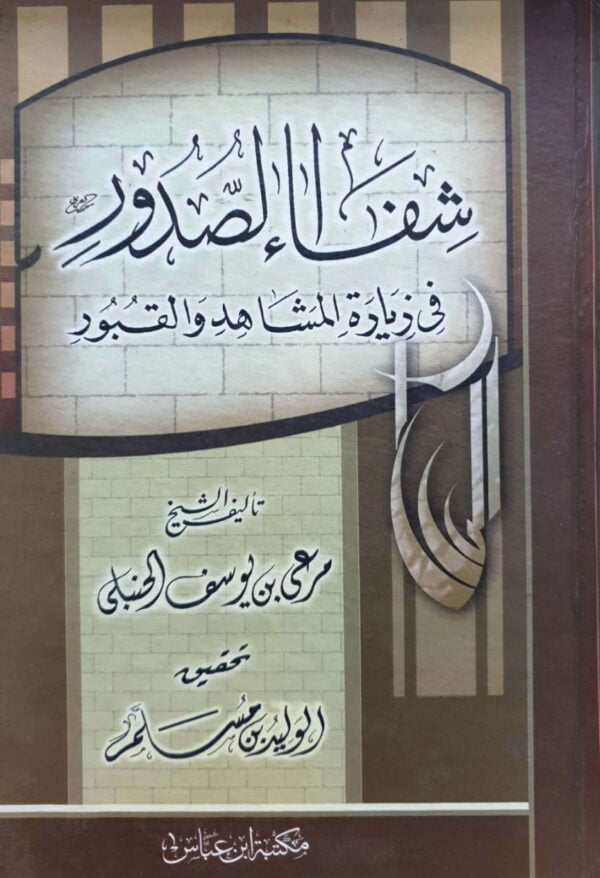 شِفَاءُ الصُّدُورِ
فِي زِيَارَةِ المَشَاهِدِ وَالقُبُورِ
تأليف الشيخ
مرعي بن يوسف الحنبلي
تحقيق
الوليد بن مُسلم
مكتبة ابن عباس